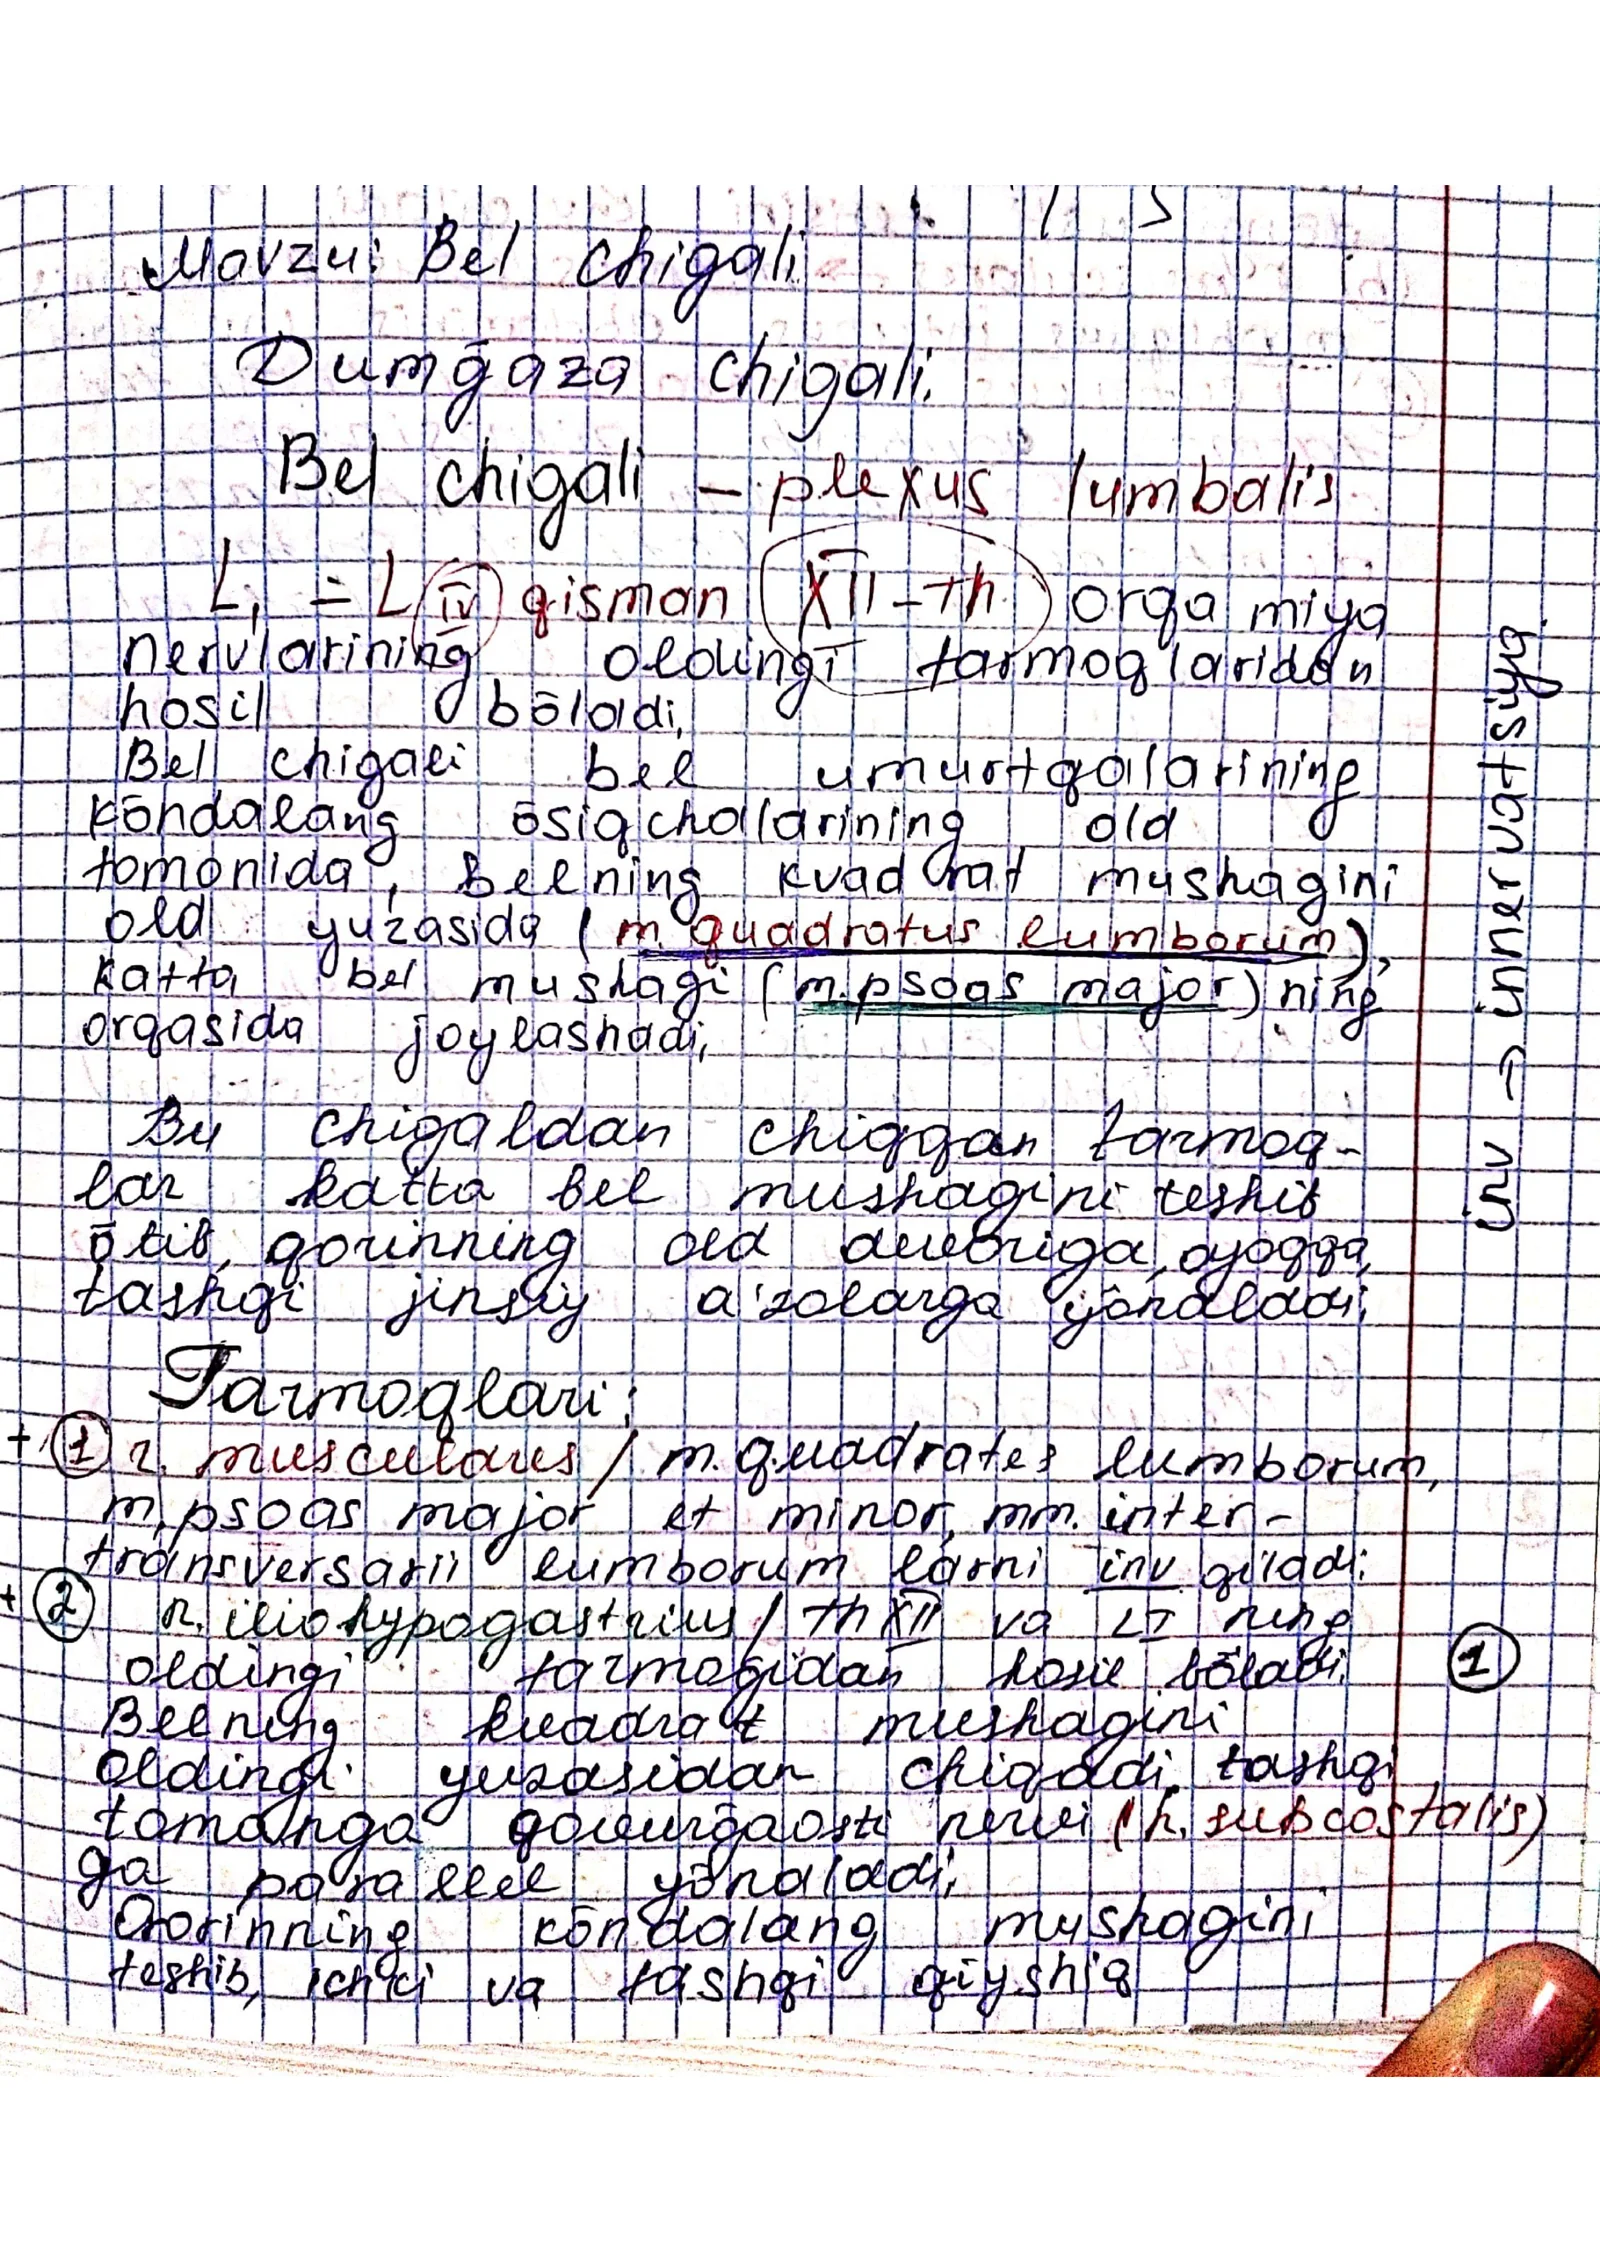 Mavzu: Bel chigali
Dumḡaza chigali.
Bel chigali – plexus lumbalis
L₁ = L IV qisman XII-Th. orqa miya
nervlarining oldingi tarmoqlaridan
hosil bōladi,
Bel chigali bel umurtqalarining
kōndalang ōsiqchalarining old
tomonida, belning kvadrat mushagini
old yuzasida (m. quadratus lumborum),
katta bel mushagi (m. psoas major) ning
orqasida joylashadi,
Bu chigaldan chiqqan tarmoq-
lar katta bel mushagini teshib
ōtib, qorinning old devoriga, oyoqqa,
tashqi jinsiy a'zolarga yōnaladi;
Tarmoqlari:
+ ① r. musculares / m. quadrates lumborum,
m, psoas major et minor, mm. inter-
transversarii lumborum larni inv qiladi:
+ ② n. iliohypogastrius / Th XII va LI ning
oldingi tarmoḡidan hosil bōladi.
Belning kvadrat mushagini
oldingi yuzasidan chiqadi, tashqi
tomonga qovurḡaosti nervi (n. subcostalis)
ga parallel yōnaladi,
Qorinning kōndalang mushagini
teshib, ichki va tashqi qiyshiq
inv → innervatsiya.
①